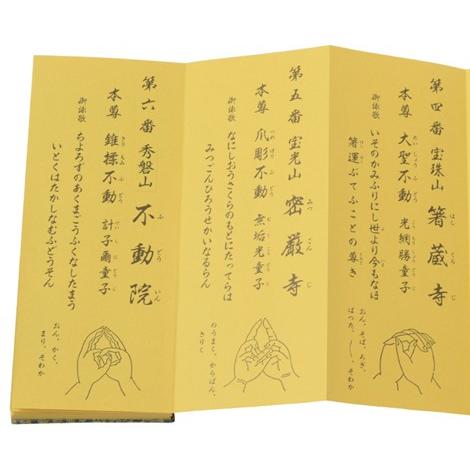 第四番 宝珠山 箸蔵寺
本尊 大聖不動 光網勝童子
御詠歌
いそのかみふりにし世より今もなほ
箸運ぶてふことの尊き
第五番 宝光山 密厳寺
みつ ごん じ
本尊 爪彫不動 無垢光童子
つめ ほり ふ どう
御詠歌
なにしおうさくらのもとにたてらは
みつごんひろうせかいなるらん
きりく
第六番 秀磐山 不動院
ふ どう いん
本尊 錐揉不動 計子爾童子
きり もみ ふ どう
御詠歌
ちよろずのあくまごうふくなしたまう
いどくはたかしなむふどうそん
おん、かく、
まり、そわか